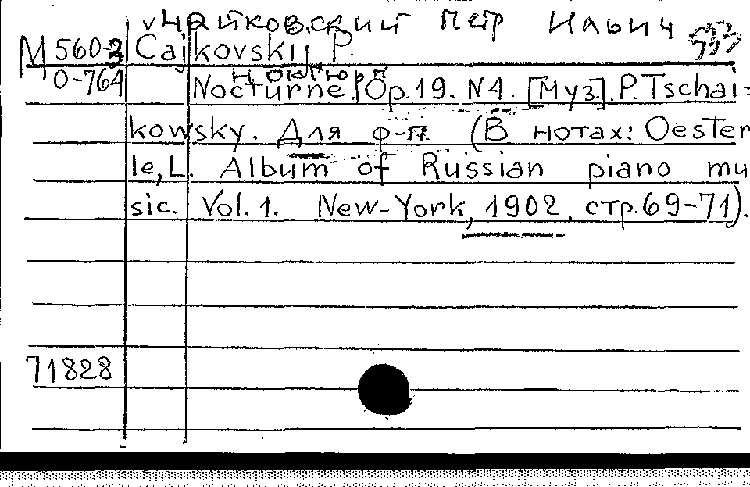 Чайковский Петр Ильич
М 560-3 Čajkovskij, P.
О-764 Ноктюрн
Nocturne. Op.19. N4. [Муз]. P. Tschai-
kowsky. Для ф-п. (В нотах: Oester
le, L. Album of Russian piano mu
sic. Vol. 1. New-York, 1902, стр. 69-71).
71828